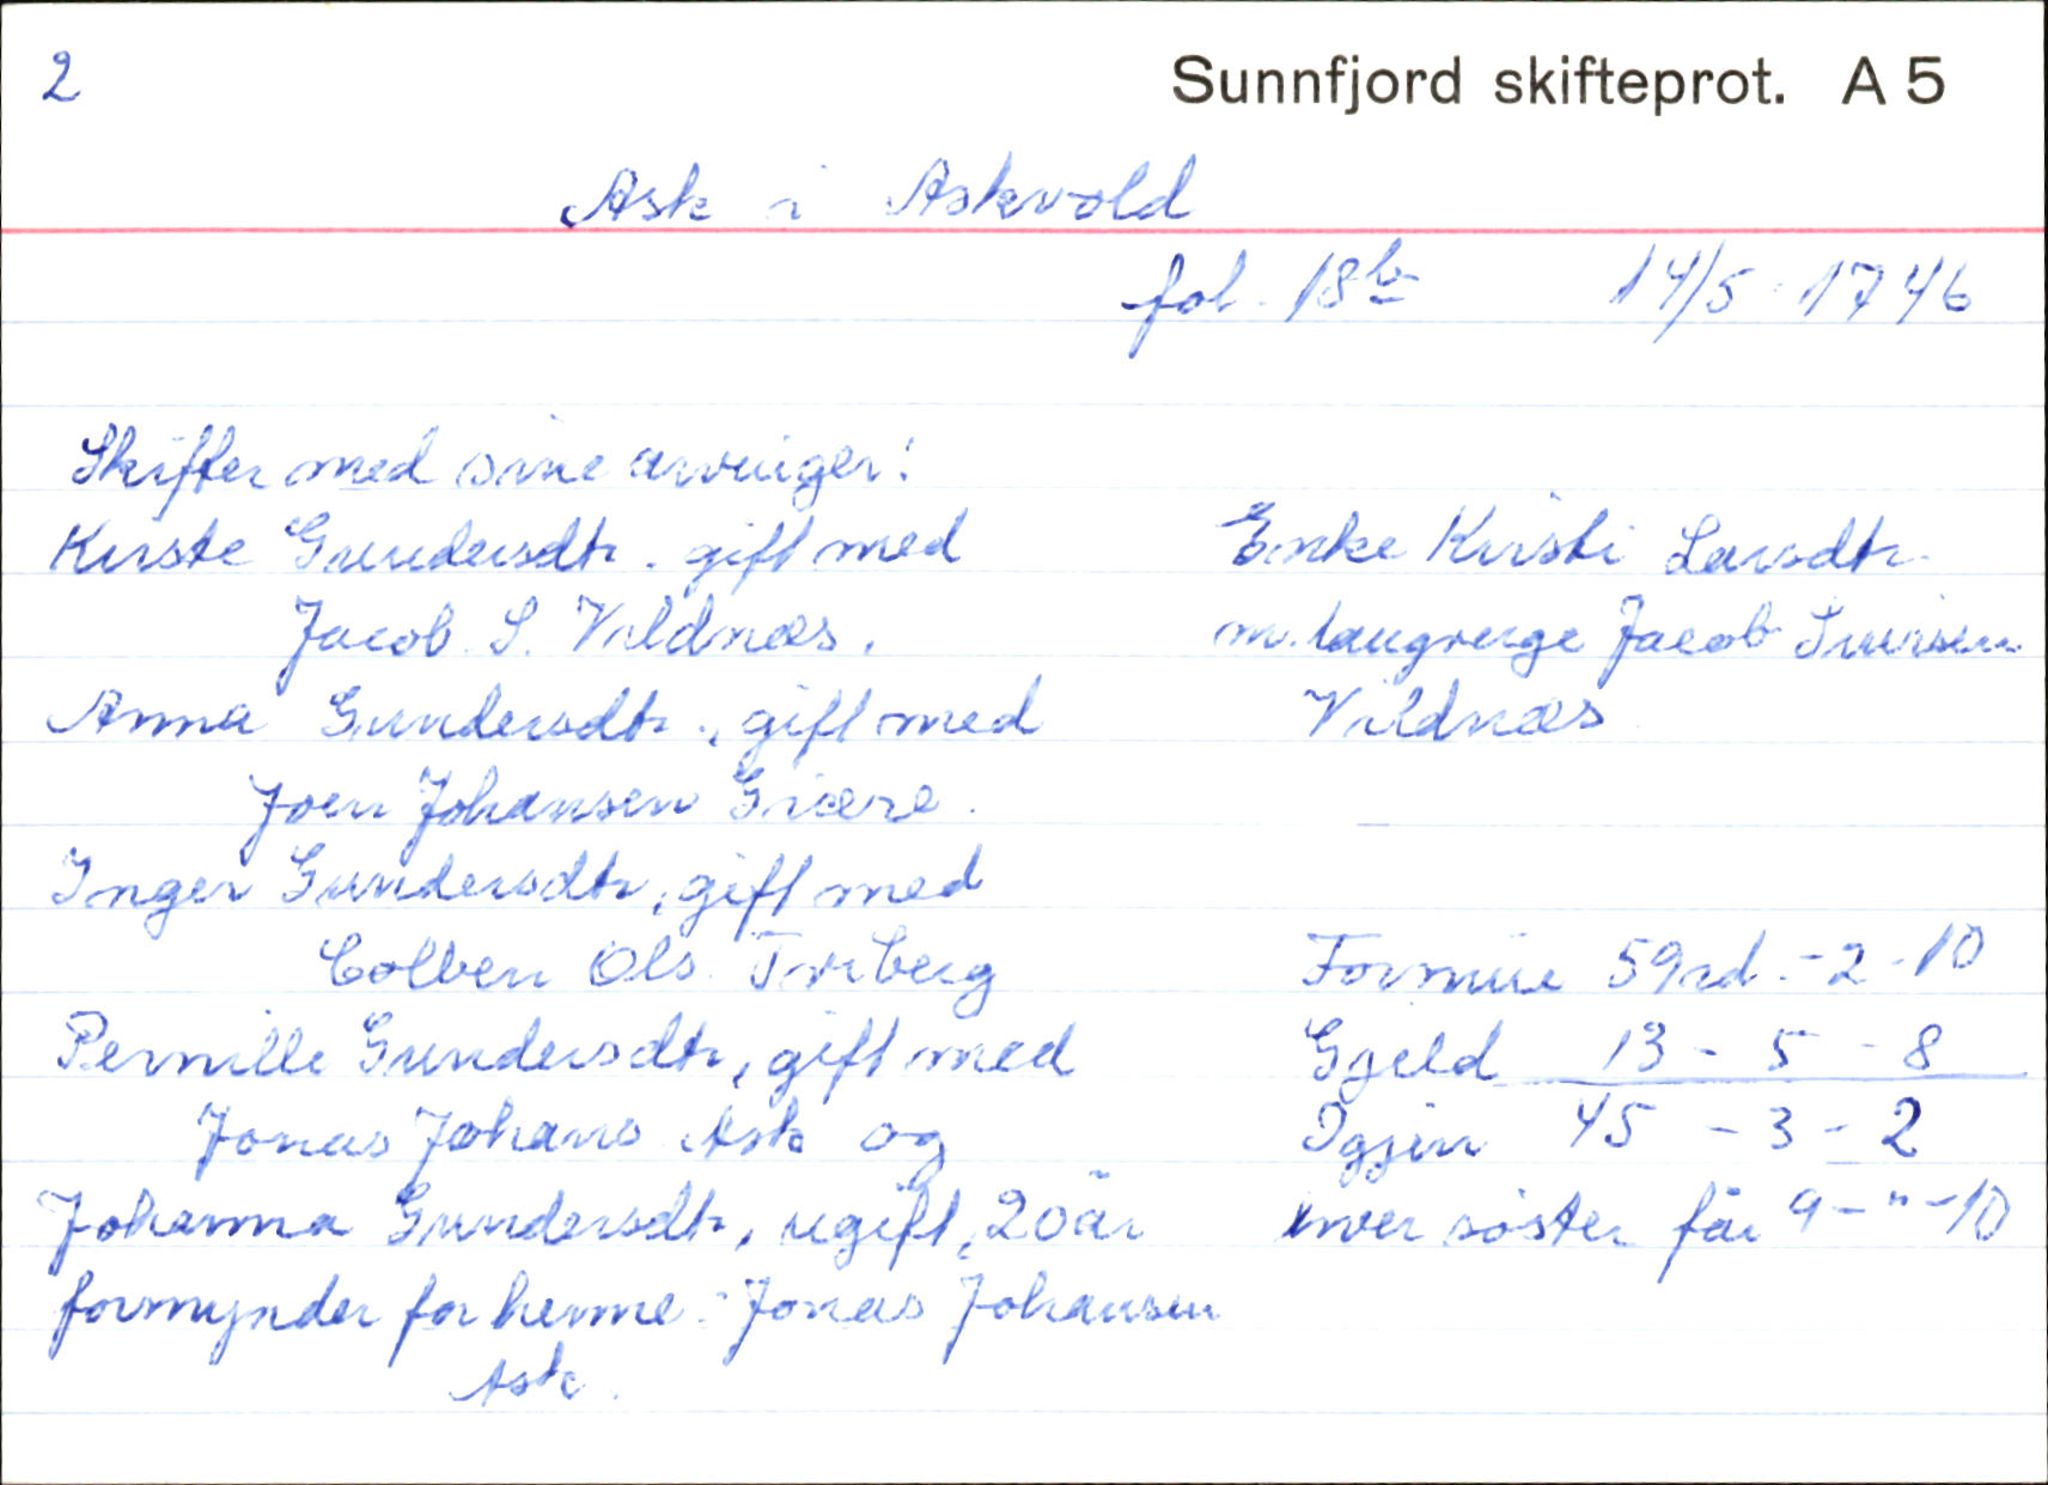 2
Sunnfjord skifteprot. A 5
Ask i Askvold
fol. 18b 14/5 1746
Skifter med sine arvinger:
Kirste Gundersdtr. gift med
Jacob S. Vildnæs.
Anna Gundersdtr., gift med
Joen Johansen Giære.
Inger Gundersdtr, gift med
Colben Ols. Tviberg
Pernille Gundersdtr, gift med
Jonas Johans. Ask og
Johanna Gundersdtr, ugift, 20 år
formynder for henne: Jonas Johansen
Ask.
Enke Kirsti Larsdtr.
m. laugverge Jacob Siversen
Vildnæs
Formue 59rd. - 2 - 10
Gjeld 13 - 5 - 8
Igjen 45 - 3 - 2
hver søster får 9 - " - 10